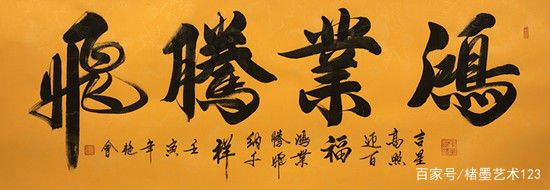 鴻業騰飛
吉星
高照
迎百
福
鴻業
騰飛
納千
祥
壬寅年艳會
百家号/楮墨艺术123